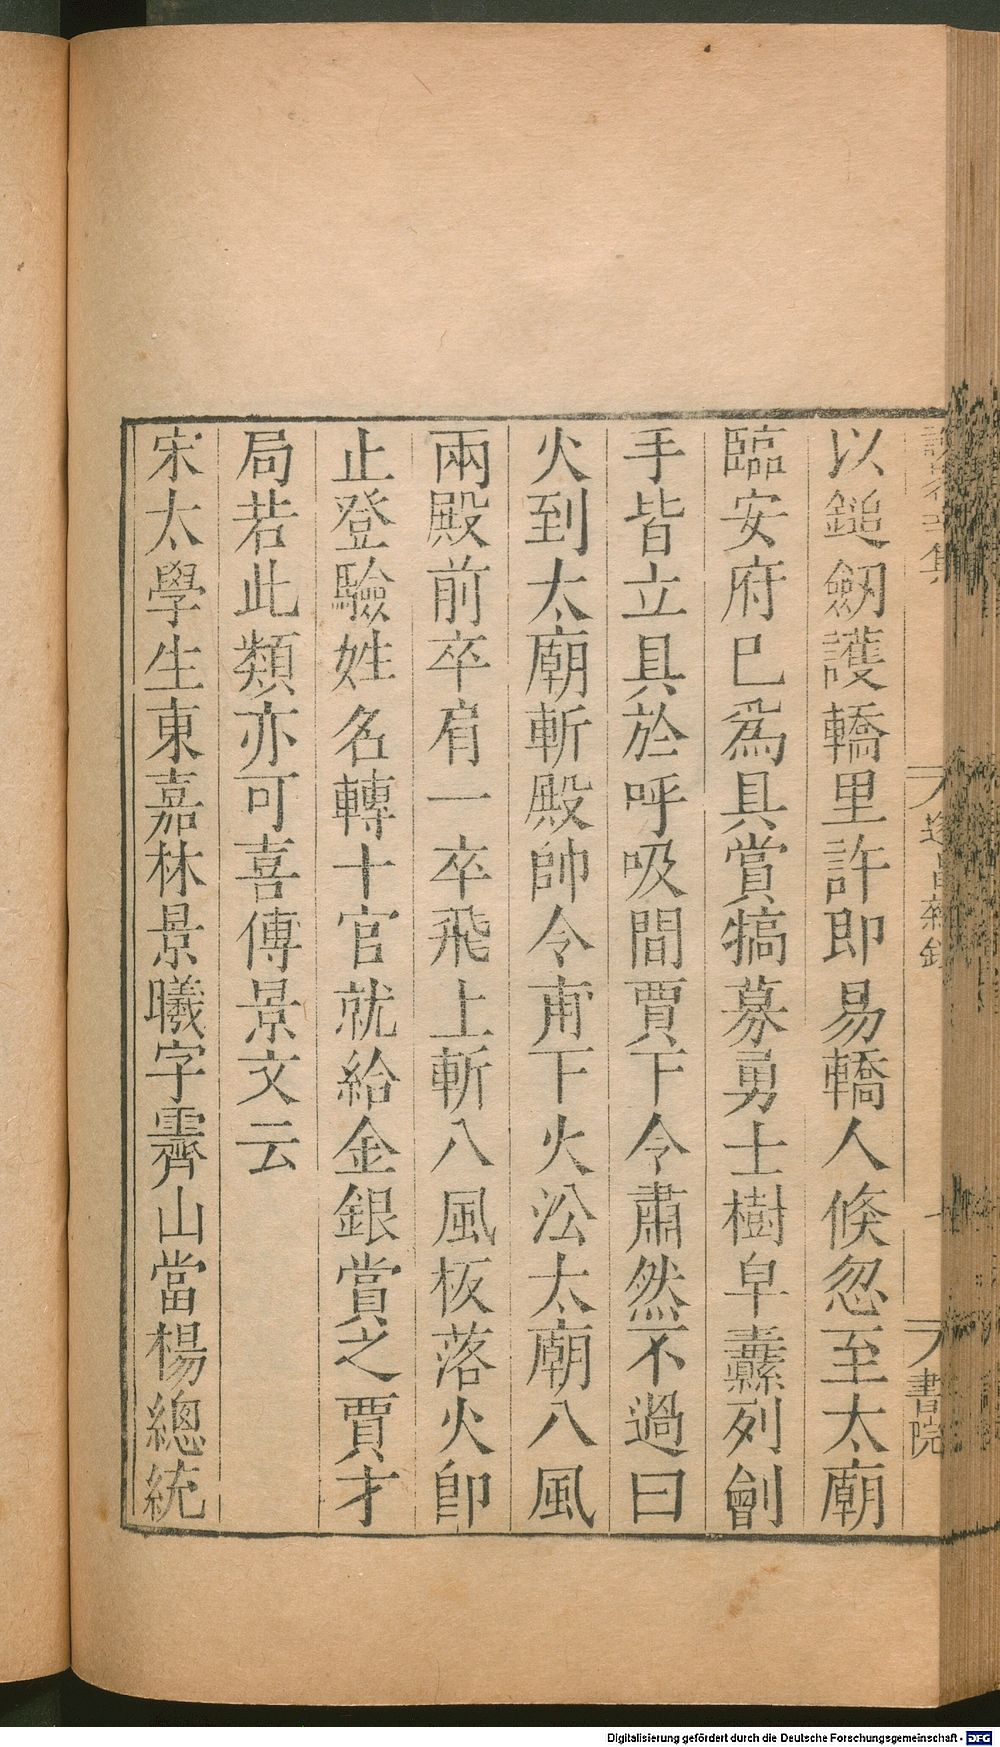 以鎚劒護轎里許即易轎人倏忽至太廟
臨安府巳為具賞犒募勇士樹皁纛列劊
手皆立具於呼吸間賈下令肅然不過曰
火到太廟斬殿帥令甫下火㳂太廟八風
兩殿前卒肩一卒飛上斬八風板落火卽
止登驗姓名轉十官就給金銀賞之賈才
局若此類亦可喜傳景文云
宋太學生東嘉林景曦字霽山當楊總統
書院
Digitalisierung gefördert durch die Deutsche Forschungsgemeinschaft - DFG